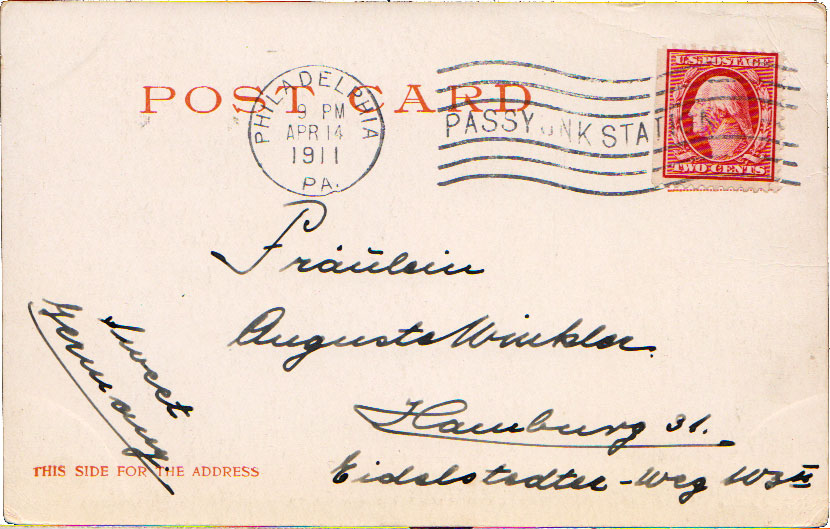 POST CARD
PHILADELPHIA
9 PM
APR 14
1911
PA.
PASSYUNK STAT
U.S. POSTAGE
TWO CENTS
Fräulein
Auguste Winkler.
Hamburg 31.
Eidelstedter-Weg
Germany
THIS SIDE FOR THE ADDRESS